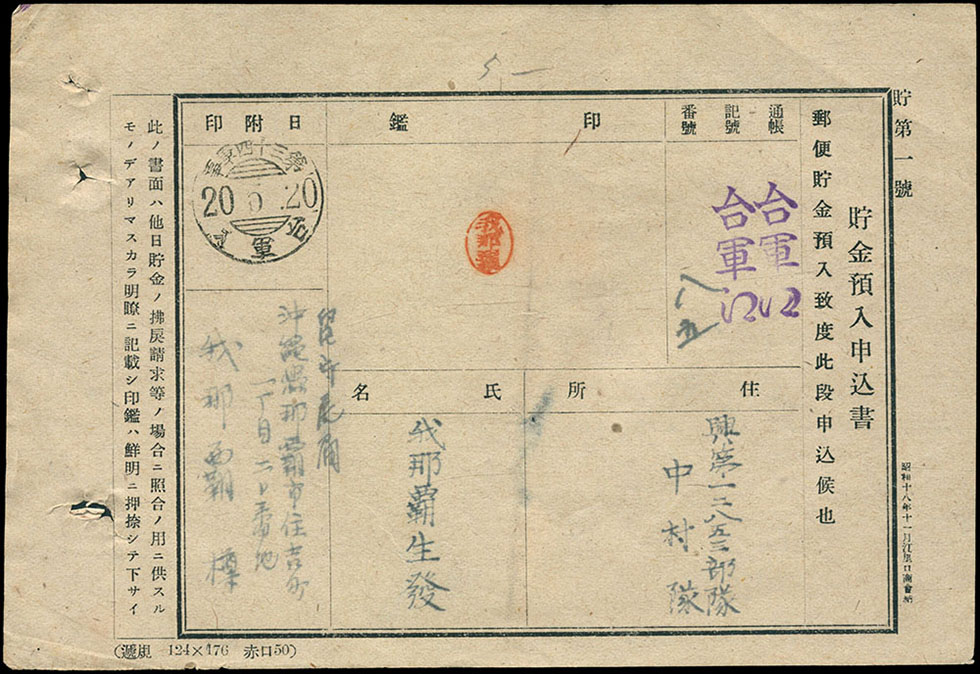 5 —
貯第一號
貯金預入申込書
郵便貯金預入致度此段申込候也
通帳
記號
番號
台軍い
台軍い
八五
印鑑
我那覇
日附印
第三十四軍
20 6 20
住所
興第一二八五三部隊
中村隊
氏名
我那覇生發
沖縄縣那覇市住吉町
一丁目二〇番地
我那覇
此ノ書面ハ他日貯金ノ拂戾請求等ノ場合ニ照合ノ用ニ供スル
モノデアリマスカラ明瞭ニ記載シ印鑑ハ鮮明ニ押捺シテ下サイ
(遞規 124×176 赤口50)
昭和十八年十一月江里口商會納